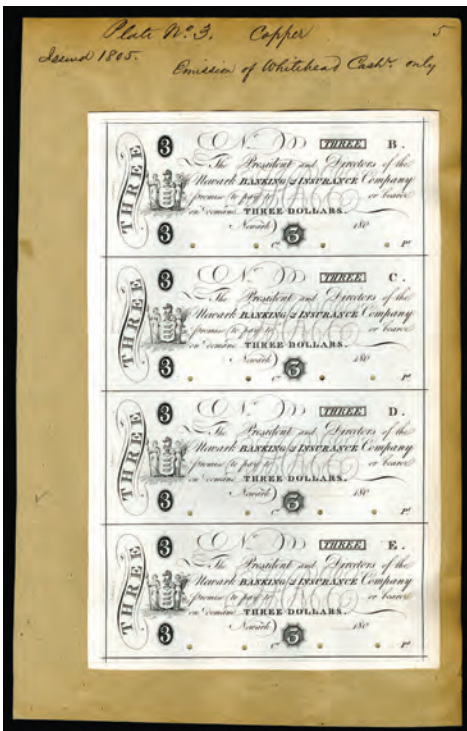 Plate No. 3. Copper 5
Issued 1805.
Emission of Whitehead Cashr. only
THREE
3 No. THREE B.
The President and Directors of the
Newark BANKING & INSURANCE Company
promise to pay to or bearer
on demand THREE DOLLARS.
Newark 180
3 Cr. 3 Pt.
THREE
3 No. THREE C.
The President and Directors of the
Newark BANKING & INSURANCE Company
promise to pay to or bearer
on demand THREE DOLLARS.
Newark 180
3 Cr. 3 Pt.
THREE
3 No. THREE D.
The President and Directors of the
Newark BANKING & INSURANCE Company
promise to pay to or bearer
on demand THREE DOLLARS.
Newark 180
3 Cr. 3 Pt.
THREE
3 No. THREE E.
The President and Directors of the
Newark BANKING & INSURANCE Company
promise to pay to or bearer
on demand THREE DOLLARS.
Newark 180
3 Cr. 3 Pt.